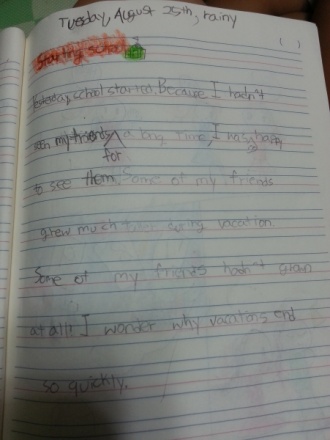 Tuesday, August 25th, rainy
( )
starting school
Yesterday, school started. Because I hadn't
seen my friends for a long time, I was happy
to see them. Some of my friends
grew much during vacation.
Some of my friends hadn't grown
at all! I wonder why vacations end
so quickly.